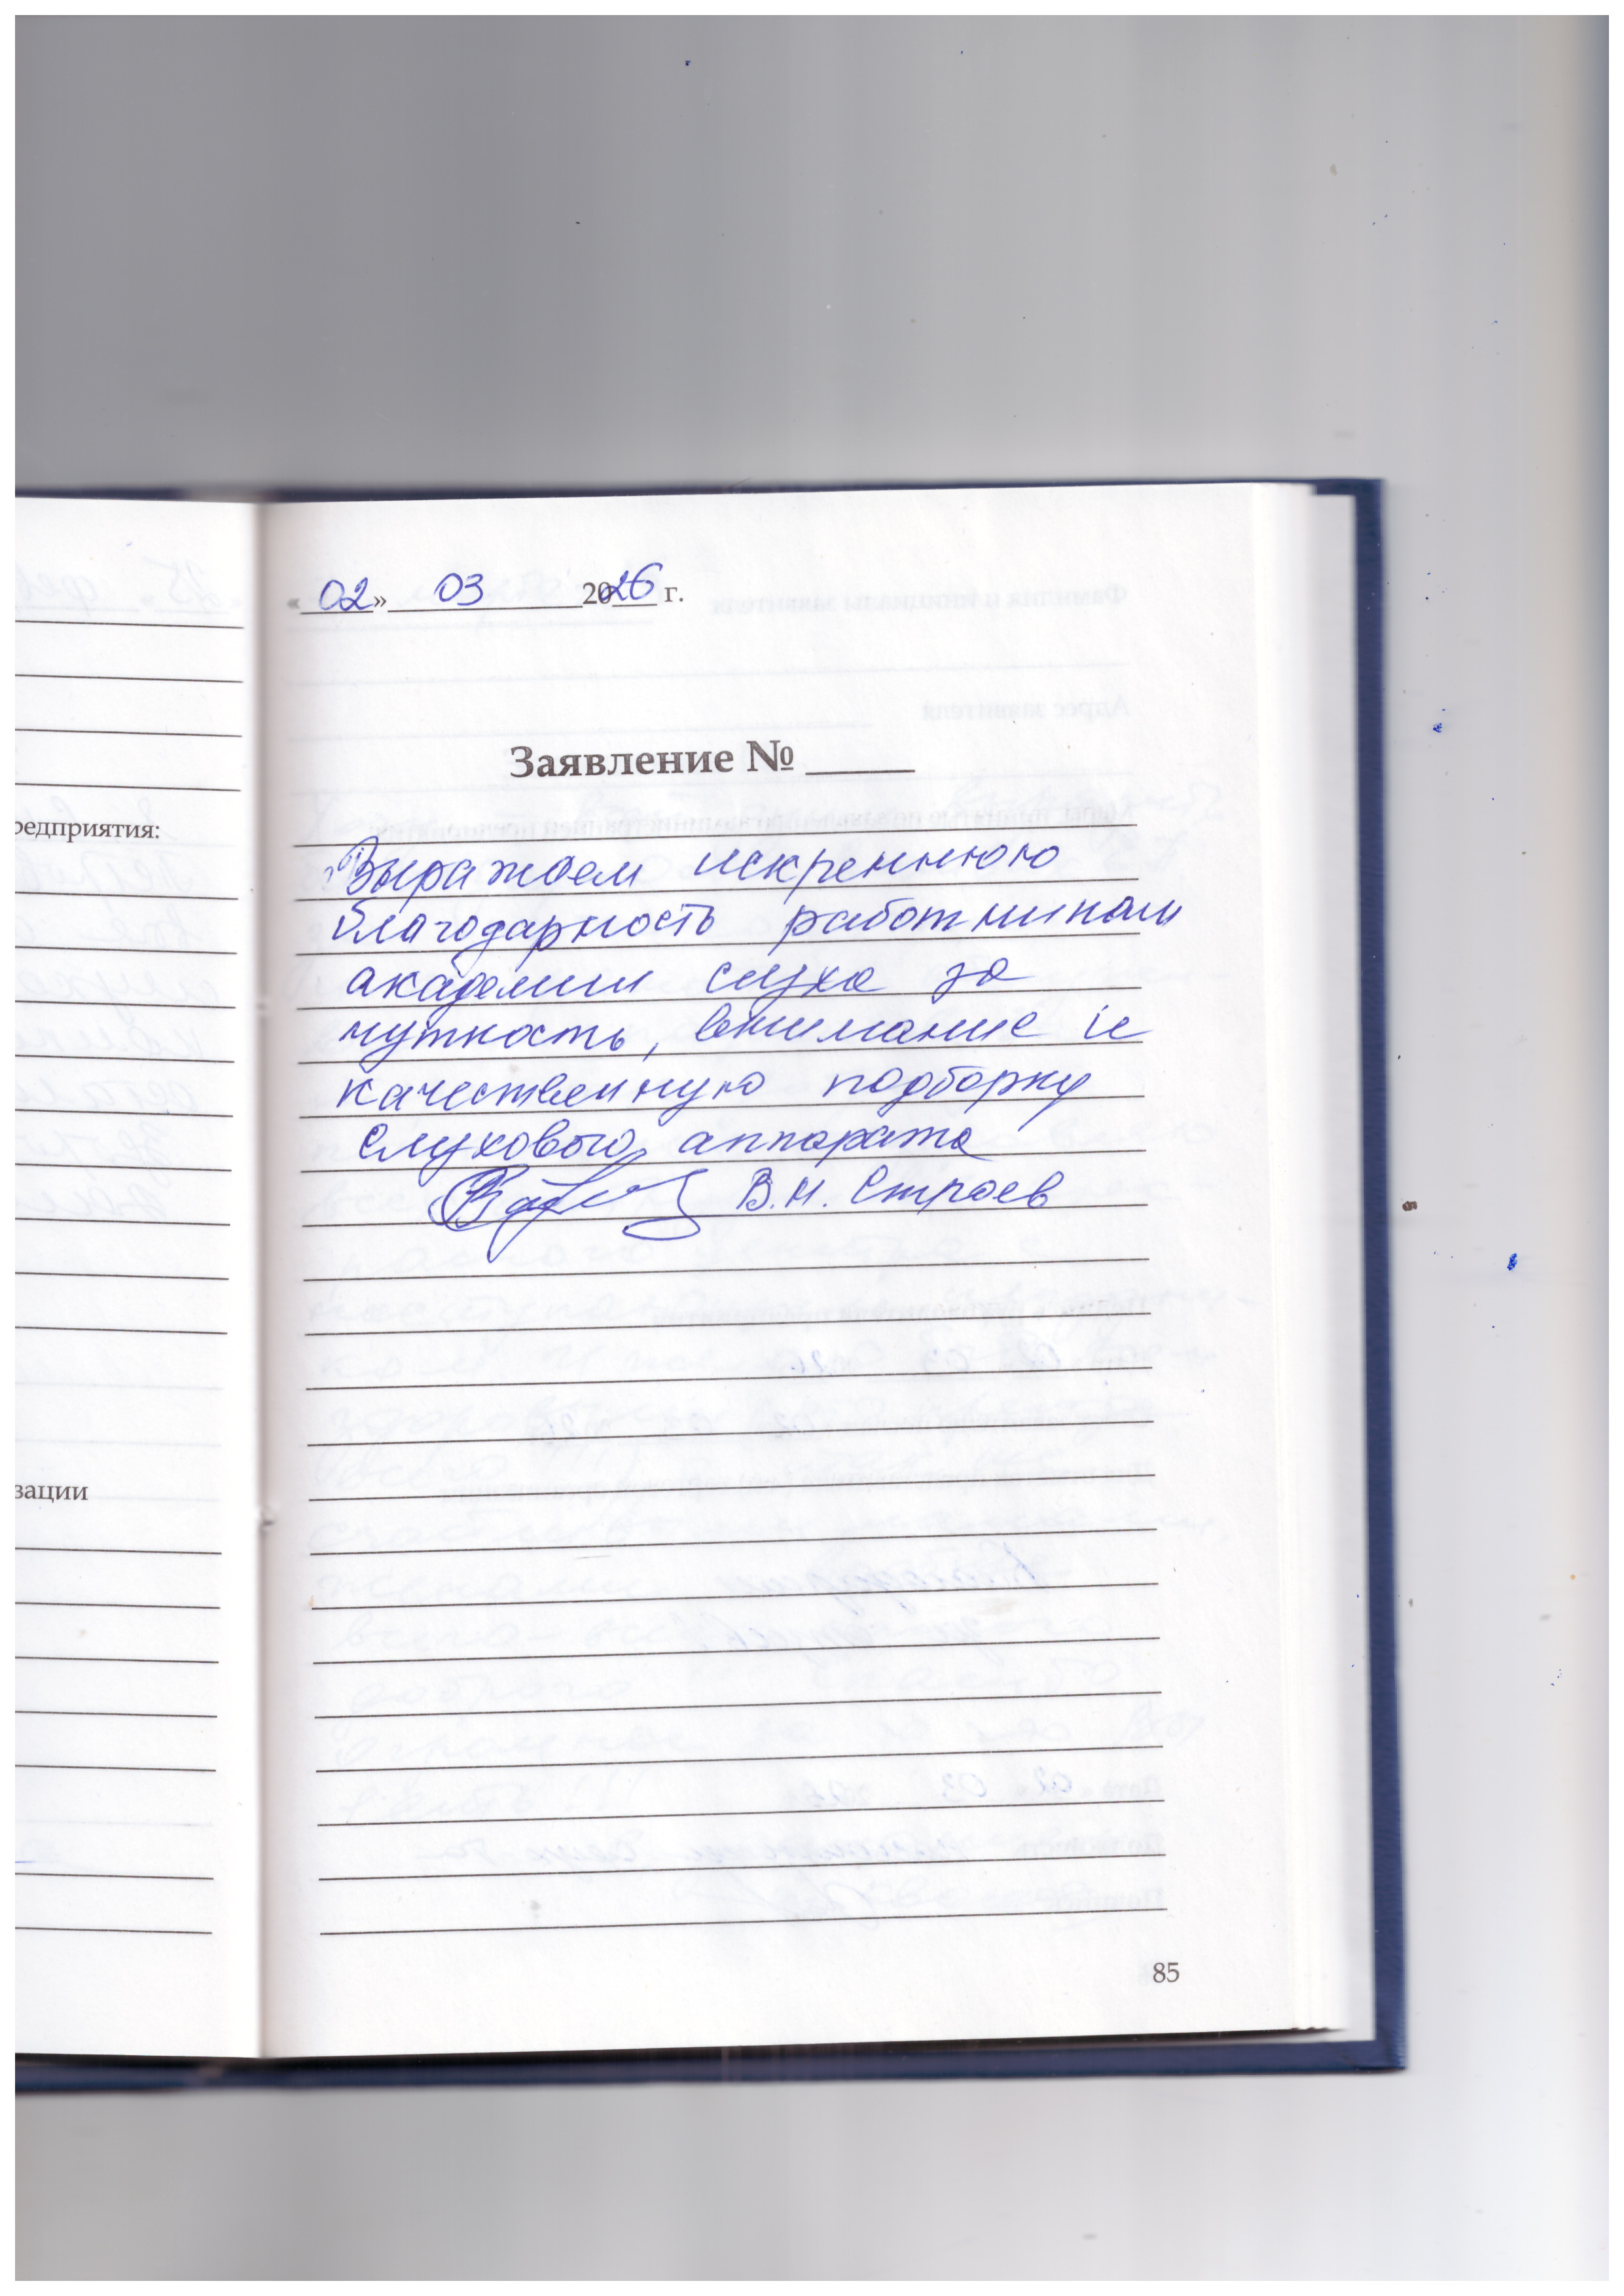 «02» 03 2026 г.
Заявление №
редприятия:
Выражаем искреннюю
благодарность работникам
академии слуха за
чуткость, внимание и
качественную подборку
слухового аппарата
В.Н. Строев
зации
85